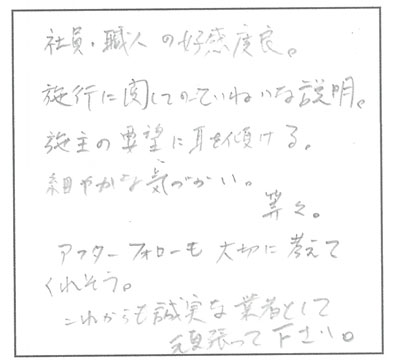 社員・職人の好感度良。
施行に関してのていねいな説明。
施主の要望に耳を傾ける。
細やかな気づかい。
等々。
アフターフォローも大切に考えて
くれそう。
これからも誠実な業者として
頑張って下さい。